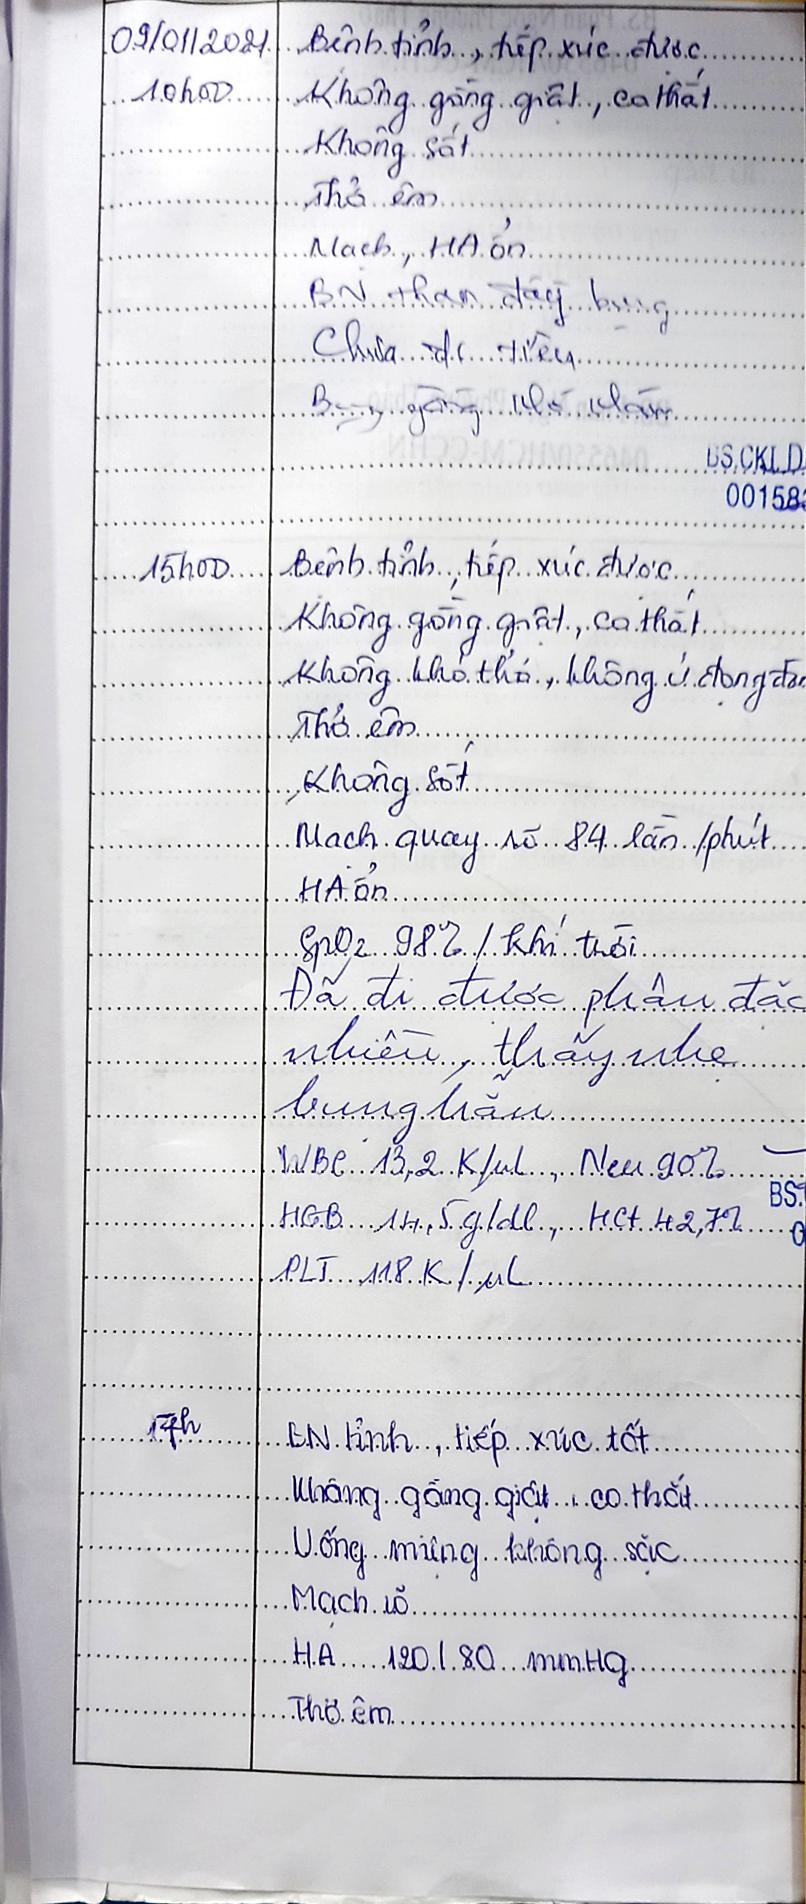 09/01/2021 Bệnh tỉnh, tiếp xúc được
10h00 Không gồng giật, co thắt
Không sốt
Thở êm
Mạch, HA ổn
BN than đầy bụng
Chưa đi tiêu
gồng nhẹ
BS.CKI.D
00158
15h00 Bệnh tỉnh, tiếp xúc được
Không gồng giật, co thắt
Không khó thở, không ứ đọng đàm
Thở êm
Không sốt
Mạch quay rõ 84 lần/phút
HA ổn
SpO2 98% / khí trời
Đã đi được phân đặc
nhiều, thấy nhẹ
bụng hẳn
WBC 13,2 K/µL, Neu 90%
BS.
HGB 14,5 g/dl, HCt 42,7%
0
PLT 118 K/µL
17h BN tỉnh, tiếp xúc tốt
Không gồng giật, co thắt
Uống miệng không sặc
Mạch rõ
HA 120/80 mmHg
Thở êm